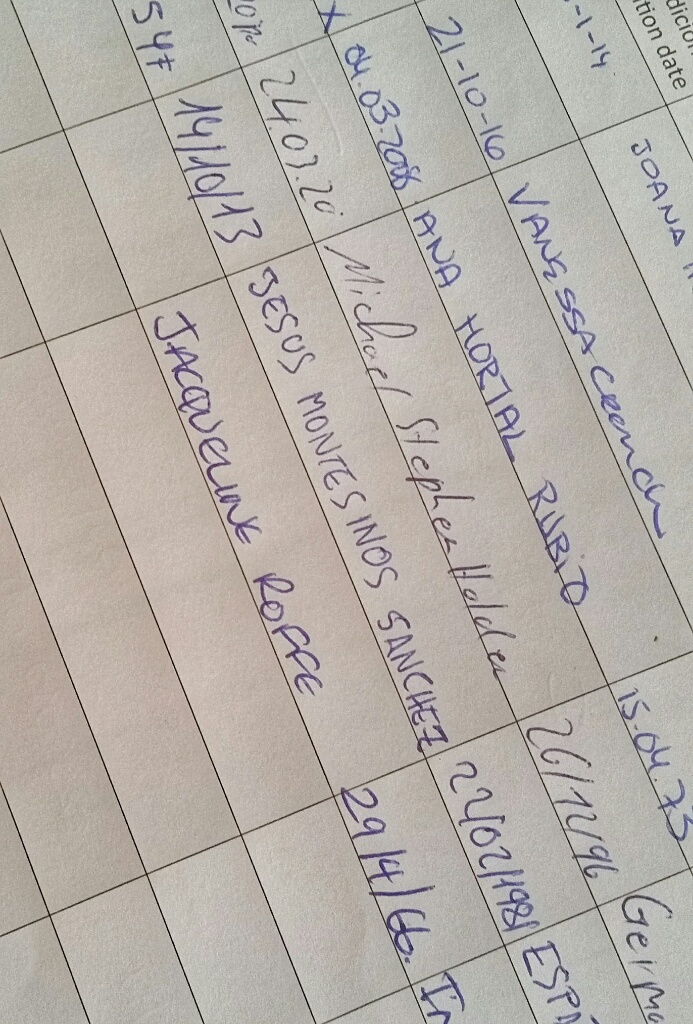 tion date
-1-14 JOANA
21-10-16 VANESSA
04.03.2008 ANA HORTAL RUBIO 15.04.73
24.03.20 Michael Stephen Holden 26/12/96 Germa
14/10/13 JESUS MONTESINOS SANCHEZ 22/02/1981 ESPA
547 JACQUELINE ROFFE 29/4/66. In